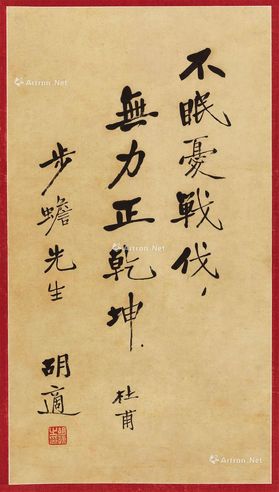 不眠憂戰伐，
無力正乾坤.
杜甫
步蟾先生
胡適
Artron.Net
Artron.Net
Artron.Net
Artron.Net